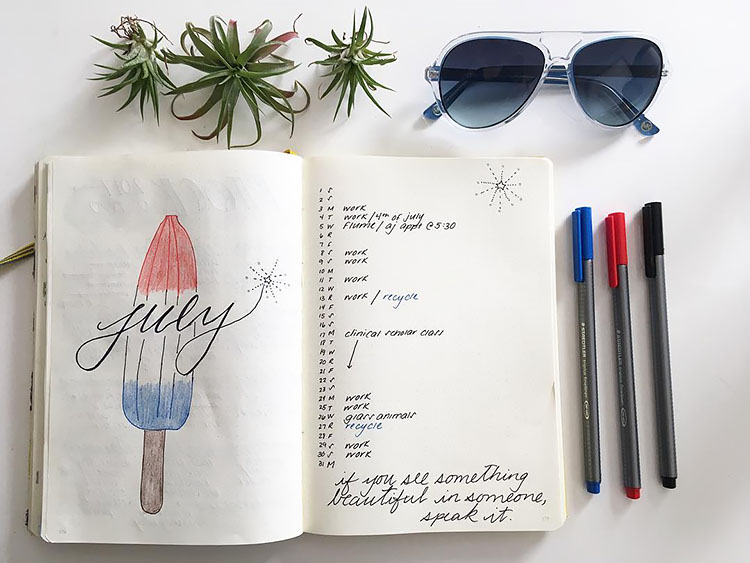 july
1 S
2 S
3 M work
4 T work / 4th of july
5 W flume / aj apple @ 5:30
6 R
7 F
8 S work
9 S work
10 M
11 T work
12 W
13 R work / recycle
14 F
15 S
16 S
17 M clinical scholar class
18 T
19 W
20 R
21 F
22 S
23 S
24 M work
25 T work
26 W glass animals
27 R recycle
28 F
29 S work
30 S work
31 M
if you see something
beautiful in someone,
speak it.
STAEDTLER
STAEDTLER
STAEDTLER